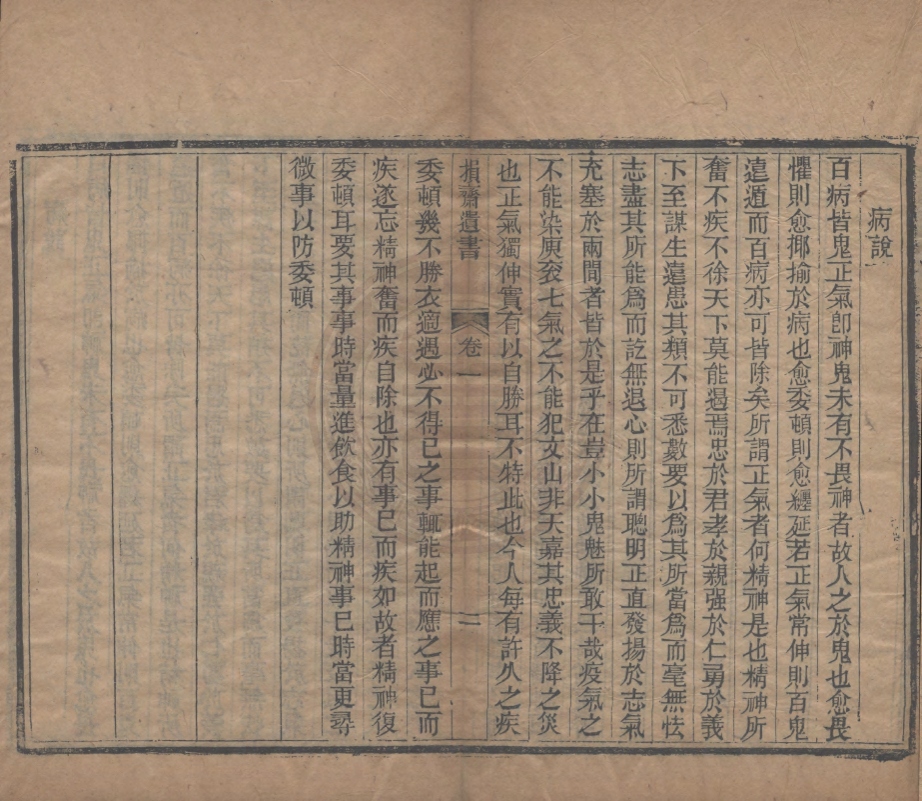 病說
百病皆鬼正氣卽神鬼未有不畏神者故人之於鬼也愈畏
懼則愈揶揄於病也愈委頓則愈纏延若正氣常伸則百鬼
遠遁而百病亦可皆除矣所謂正氣者何精神是也精神所
奮不疾不徐天下莫能遏焉忠於君孝於親强於仁勇於義
下至謀生遠患其類不可悉數要以爲其所當爲而毫無怯
志盡其所能爲而訖無退心則所謂聰明正直發揚於志氣
充塞於兩間者皆於是乎在豈小小鬼魅所敢干哉疫氣之
不能染庾衮七氣之不能犯文山非天嘉其忠義不降之災
也正氣獨伸實有以自勝耳不特此也今人每有許久之疾
損齋遺書 卷一 二
委頓幾不勝衣適遇必不得已之事輒能起而應之事已而
疾遂忘精神奮而疾自除也亦有事已而疾如故者精神復
委頓耳要其事事時當量進飲食以助精神事已時當更尋
微事以防委頓